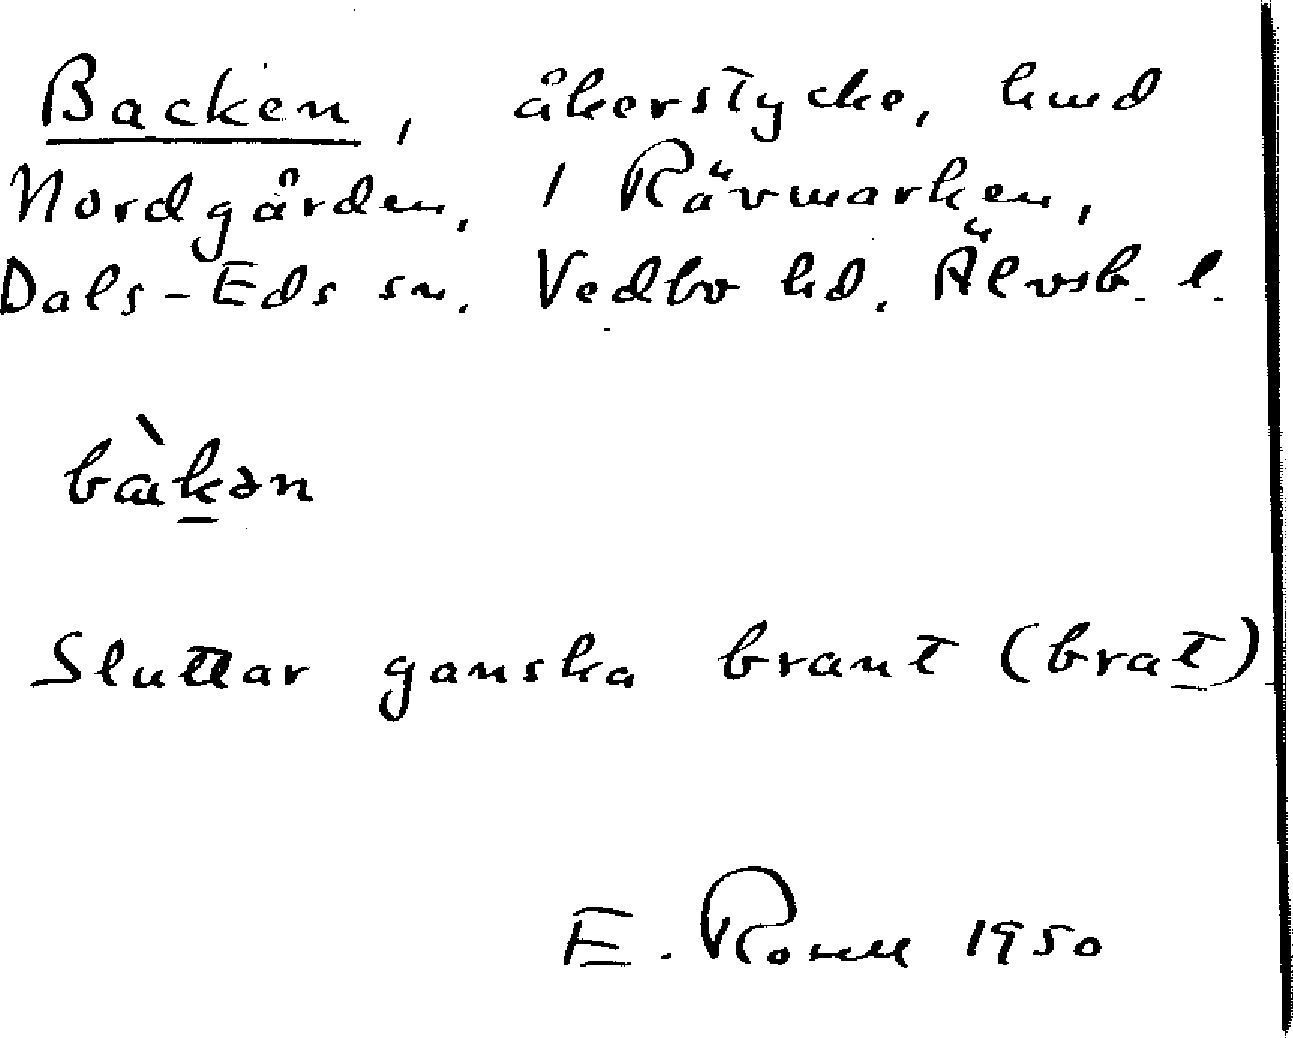 Backen, åkerstycke, hmd
Nordgården, 1 Rävmarken,
Dals-Eds sn. Vedbo hd. Älvsb. l.
bàkən
Sluttar ganska brant (brat)
E. 1950